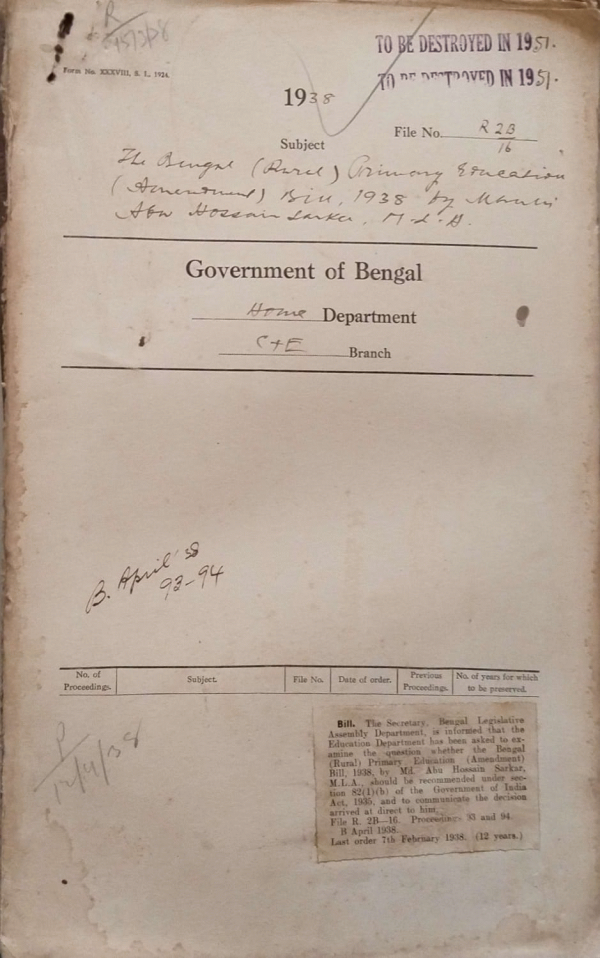 R
TO BE DESTROYED IN 1951.
Form No. XXXVIII, S. L., 1924.
TO BE DESTROYED IN 1951.
1938
File No. R 2B
16
Subject
The Bengal (Rural) Primary Education
(Amendment) Bill, 1938 by Maulvi
Abu Hossain Sarkar, M.L.A.
Government of Bengal
Home Department
C+E Branch
B. April '38
93-94
No. of Proceedings. Subject. File No. Date of order. Previous Proceedings. No. of years for which to be preserved.
12/4/38
Bill. The Secretary, Bengal Legislative
Assembly Department, is informed that the
Education Department has been asked to ex-
amine the question whether the Bengal
(Rural) Primary Education (Amendment)
Bill, 1938, by Md. Abu Hossain Sarkar,
M.L.A., should be recommended under sec-
tion 82(1)(b) of the Government of India
Act, 1935, and to communicate the decision
arrived at direct to him.
File R. 2B—16. Proceedings 93 and 94
B April 1938.
Last order 7th February 1938. (12 years.)